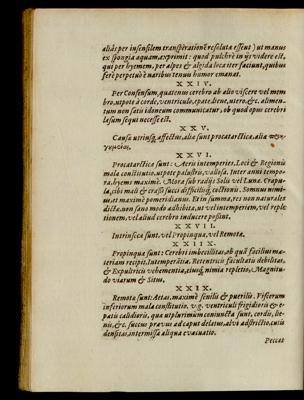 aliàs per insensilem transpirationē resoluta essent) ut manus
ex spongia aquam, exprimit: quod pulchrè in ijs videre est,
qui per hyemem, per alpes & algida loca iter faciunt, quibus
ferè perpetuò è naribus tenuis humor emanat.
XXIV.
Per Consensum, quatenus cerebro ab alio viscere vel mem-
bro, utpote à corde, ventriculo, epate, liene, utero, &c. alimen-
tum non satis idoneum communicatur, ob quod opus cerebri
læsum sequi necesse est.
XXV.
Causæ utriusq; affectus, aliæ sunt procatarcticæ, aliæ
XXVI.
Procatarcticæ sunt: Aëris intemperies, Loci & Regionis
mala constitutio, utpote palustris, vallosa. Inter anni tempo-
ra, hyems maximè. Mora sub radijs Solis vel Lunæ. Crapu-
la, cibi mali & crassi succi difficilisq; coctionis. Somnus nimi-
us, et maximè pomeridianus. Et in summa, res non naturales
dictæ, non sano modo adhibitæ, ut vel intemperiem, vel reple-
tionem, vel aliud cerebro inducere possint.
XXVII.
Intrinsecæ sunt, vel Propinquæ, vel Remotæ.
XXIIX.
Propinquæ sunt: Cerebri imbecillitas, ob quā facilius ma-
teriam recipit, Intemperātia. Retentricis facultatis debilitas,
& Expultricis vehementia, eiusq; nimia repletio, Magnitu-
do viarum & Situs.
XXIX.
Remotæ sunt: Aetas, maximè senilis & puerilis. Viscerum
inferiorum mala constitutio, v. g. ventriculi frigidioris & e-
patis calidioris, quæ ut plurimùm coniuncta sunt, cordis, lie-
nis, &c. succus pravus ad caput delatus, alvi adstrictio, cutis
densitas, intermissa aliqua evacuatio.
Peccat